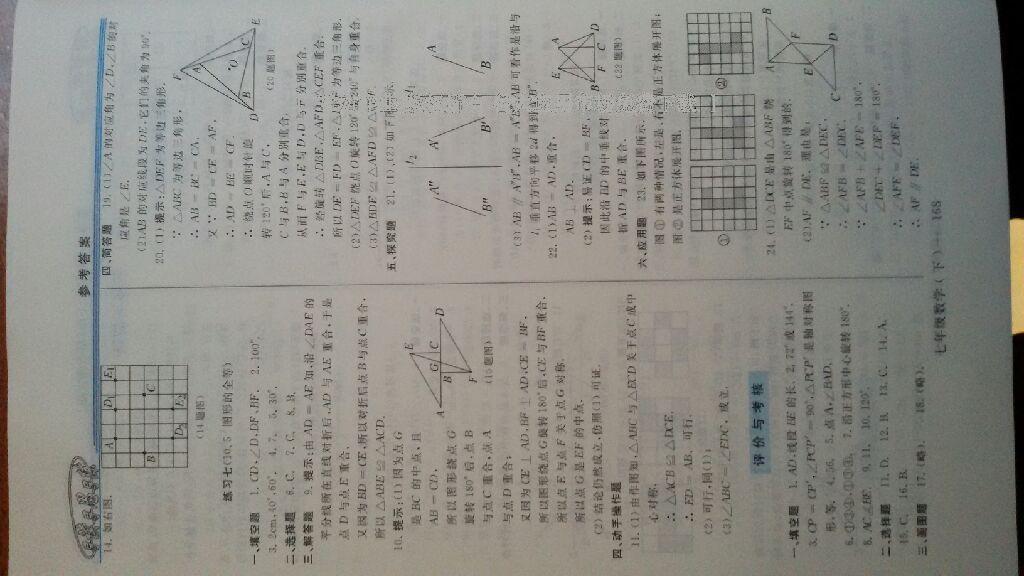 参考答案
14. 如右图.
A
D₁
E₁
B
C
D₂
E₂
(14题图)
练习七(10.5 图形的全等)
一、填空题 1. CD,∠D,DF,BF. 2. 100°.
3. 2cm,40°,60°. 4. 7. 5. 30°.
二、选择题 6. C. 7. C. 8. B.
三、解答题 9. 提示:由 AD=AE 知,沿∠DAE 的
平分线所在直线对折后,AD 与 AE 重合,于是
点 D 与点 E 重合.
又因为 BD=CE,所以对折后点 B 与点 C 重合,
所以△ABE≌△ACD.
10. 提示:(1)因为点 G
是 BC 的中点,且
AB=CD,
所以图形绕点 G
旋转 180°后,点 B
与点 C 重合,点 A
与点 D 重合;
A
E
G
B
C
D
F
又因为 CE⊥AD,BF⊥AD,CE=BF,
所以图形绕点 G 旋转 180°后,CE 与 BF 重合,
所以点 E 与点 F 关于点 G 对称.
所以点 G 是 EF 的中点.
(2)结论仍然成立,仿照(1)可证.
四、动手操作题
11. (1)由作图知,△ABC 与△EDC 关于点 C 成中
心对称.
∴ △ACB≌△DCE.
∴ ED=AB. 可行.
(2)可行,同(1);
(3)∠ABC=∠EDC,成立.
评价与考核
一、填空题 1. AD,线段 BE 的长. 2. 72°或 144°.
3. CP=CP′,∠PCP′=90°,△PCP′是轴对称图
形,等. 4. 56. 5. 点 A,∠BAD.
7. 沿正方形中心旋转 180°.
8. AC,∠BE. 9. 11. 10. 120°.
二、选择题 11. D. 12. B. 13. C. 14. A.
15. C. 16. B.
三、画图题 17. (略). 18. (略).
四、简答题 19. (1)∠A 的对应角为∠D,∠B 的对
应角是∠E.
(2)AB 的对应线段为 DE,它们的夹角为 90°.
20. (1)提示:△DEF 为等边三角形.
∵ △ABC 为等边三角形,
∴ AB=BC=CA.
又∵ BD=CE=AF,
∴ AD=BE=CF.
∴ 绕点 O 顺时针旋
转 120°后,A 与 C、
C 与 B、B 与 A 分别重合.
F
A
O
C
E
B
D
(20题图)
从而 F 与 E、E 与 D、D 与 F 分别重合.
∴ 经旋转△DBE、△AFD、△CEF 重合.
所以 DE=FD=EF,△DEF 为等边三角形.
(2)△DEF 绕点 O 旋转 120°或 240°与自身重合.
五、探究题 21. (1)、(2)如下图所示.
A
B
l₁
A′
B′
l₂
A″
B″
(3)AB∥A″B″,AB=A″B″,AB 可看作是沿与
l₁ 垂直方向平移 2d 得到 A″B″.
22. (1)AB=AD,重合.
AB⊥AD.
(2)提示:易证 CD=BF,
因此沿 BD 的中垂线对
折,AD 与 BE 重合.
A
E
D
C
F
B
(22题图)
六、应用题 23. 如下图所示.
图①有两种情况,左是,右不是正方体展开图;
图②是正方体展开图.
①
②
24. (1)△DCE 是由△ABF 绕
EF 中点旋转 180°得到的.
(2)AF∥DE. 理由是:
∵ △ABF≌△DEC,
∴ ∠AFB=∠DEC.
∵ ∠AFB+∠AFE=180°,
∠DEC+∠DEF=180°,
∴ ∠AFE=∠DEF.
∴ AF∥DE.
A
B
F
E
D
C
七年级数学(下)—168